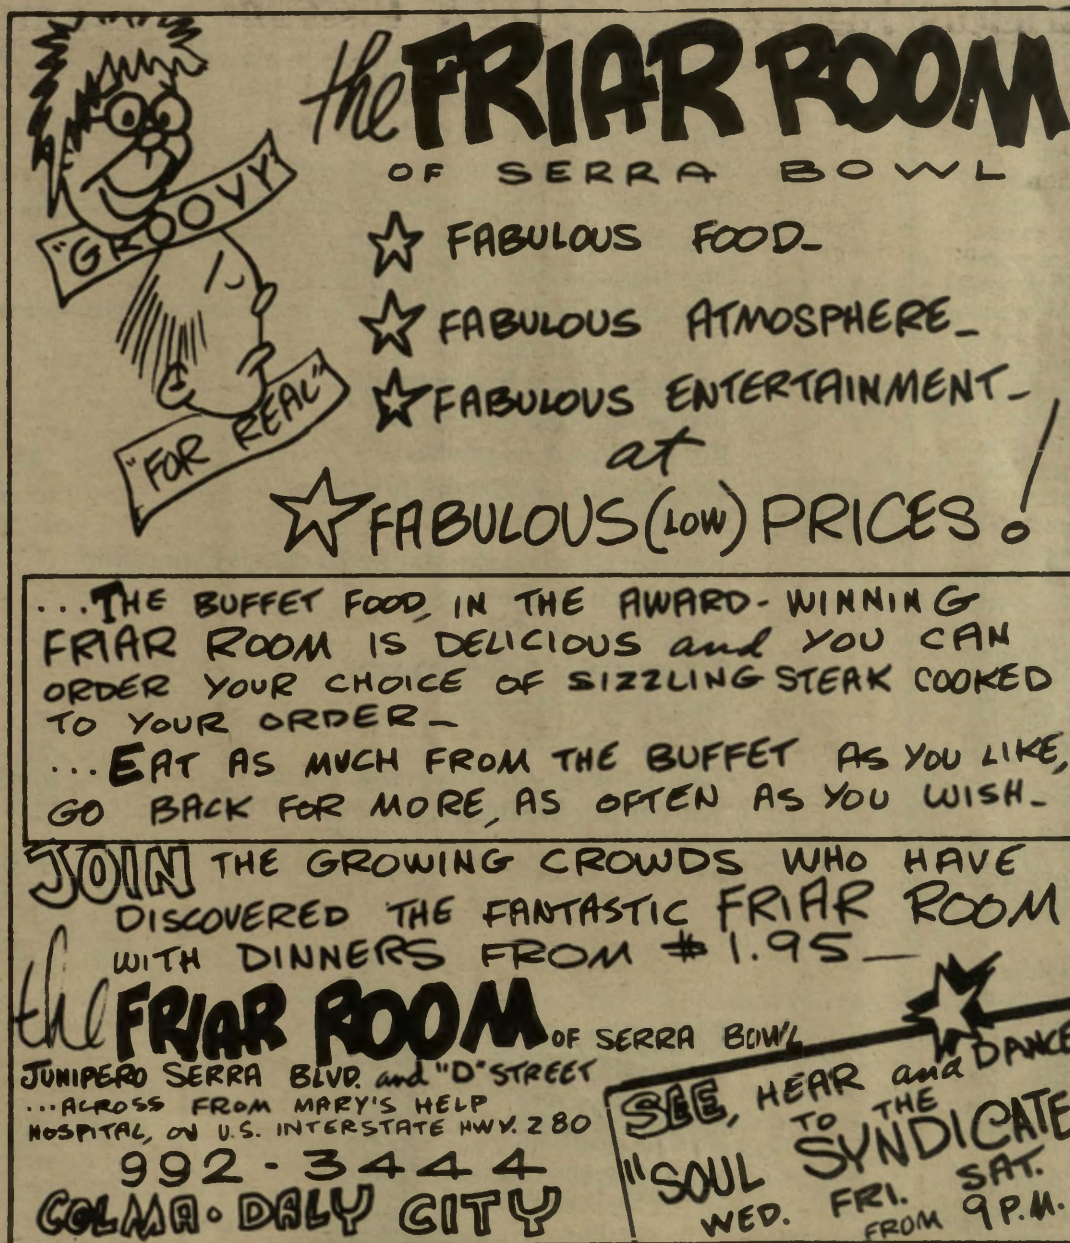 the FRIAR ROOM
OF SERRA BOWL
"GROOVY"
"FOR REAL"
FABULOUS FOOD-
FABULOUS ATMOSPHERE-
FABULOUS ENTERTAINMENT-
at
FABULOUS (LOW) PRICES!
...THE BUFFET FOOD, IN THE AWARD-WINNING
FRIAR ROOM IS DELICIOUS and YOU CAN
ORDER YOUR CHOICE OF SIZZLING STEAK COOKED
TO YOUR ORDER-
...EAT AS MUCH FROM THE BUFFET AS YOU LIKE,
GO BACK FOR MORE, AS OFTEN AS YOU WISH-
JOIN THE GROWING CROWDS WHO HAVE
DISCOVERED THE FANTASTIC FRIAR ROOM
WITH DINNERS FROM $1.95-
the FRIAR ROOM OF SERRA BOWL
JUNIPERO SERRA BLVD. and "D" STREET
...ACROSS FROM MARY'S HELP
HOSPITAL, ON U.S. INTERSTATE HWY. 280
992-3444
COLMA • DALY CITY
SEE, HEAR and DANCE
TO THE
"SOUL SYNDICATE
WED. FRI. SAT.
FROM 9 P.M.